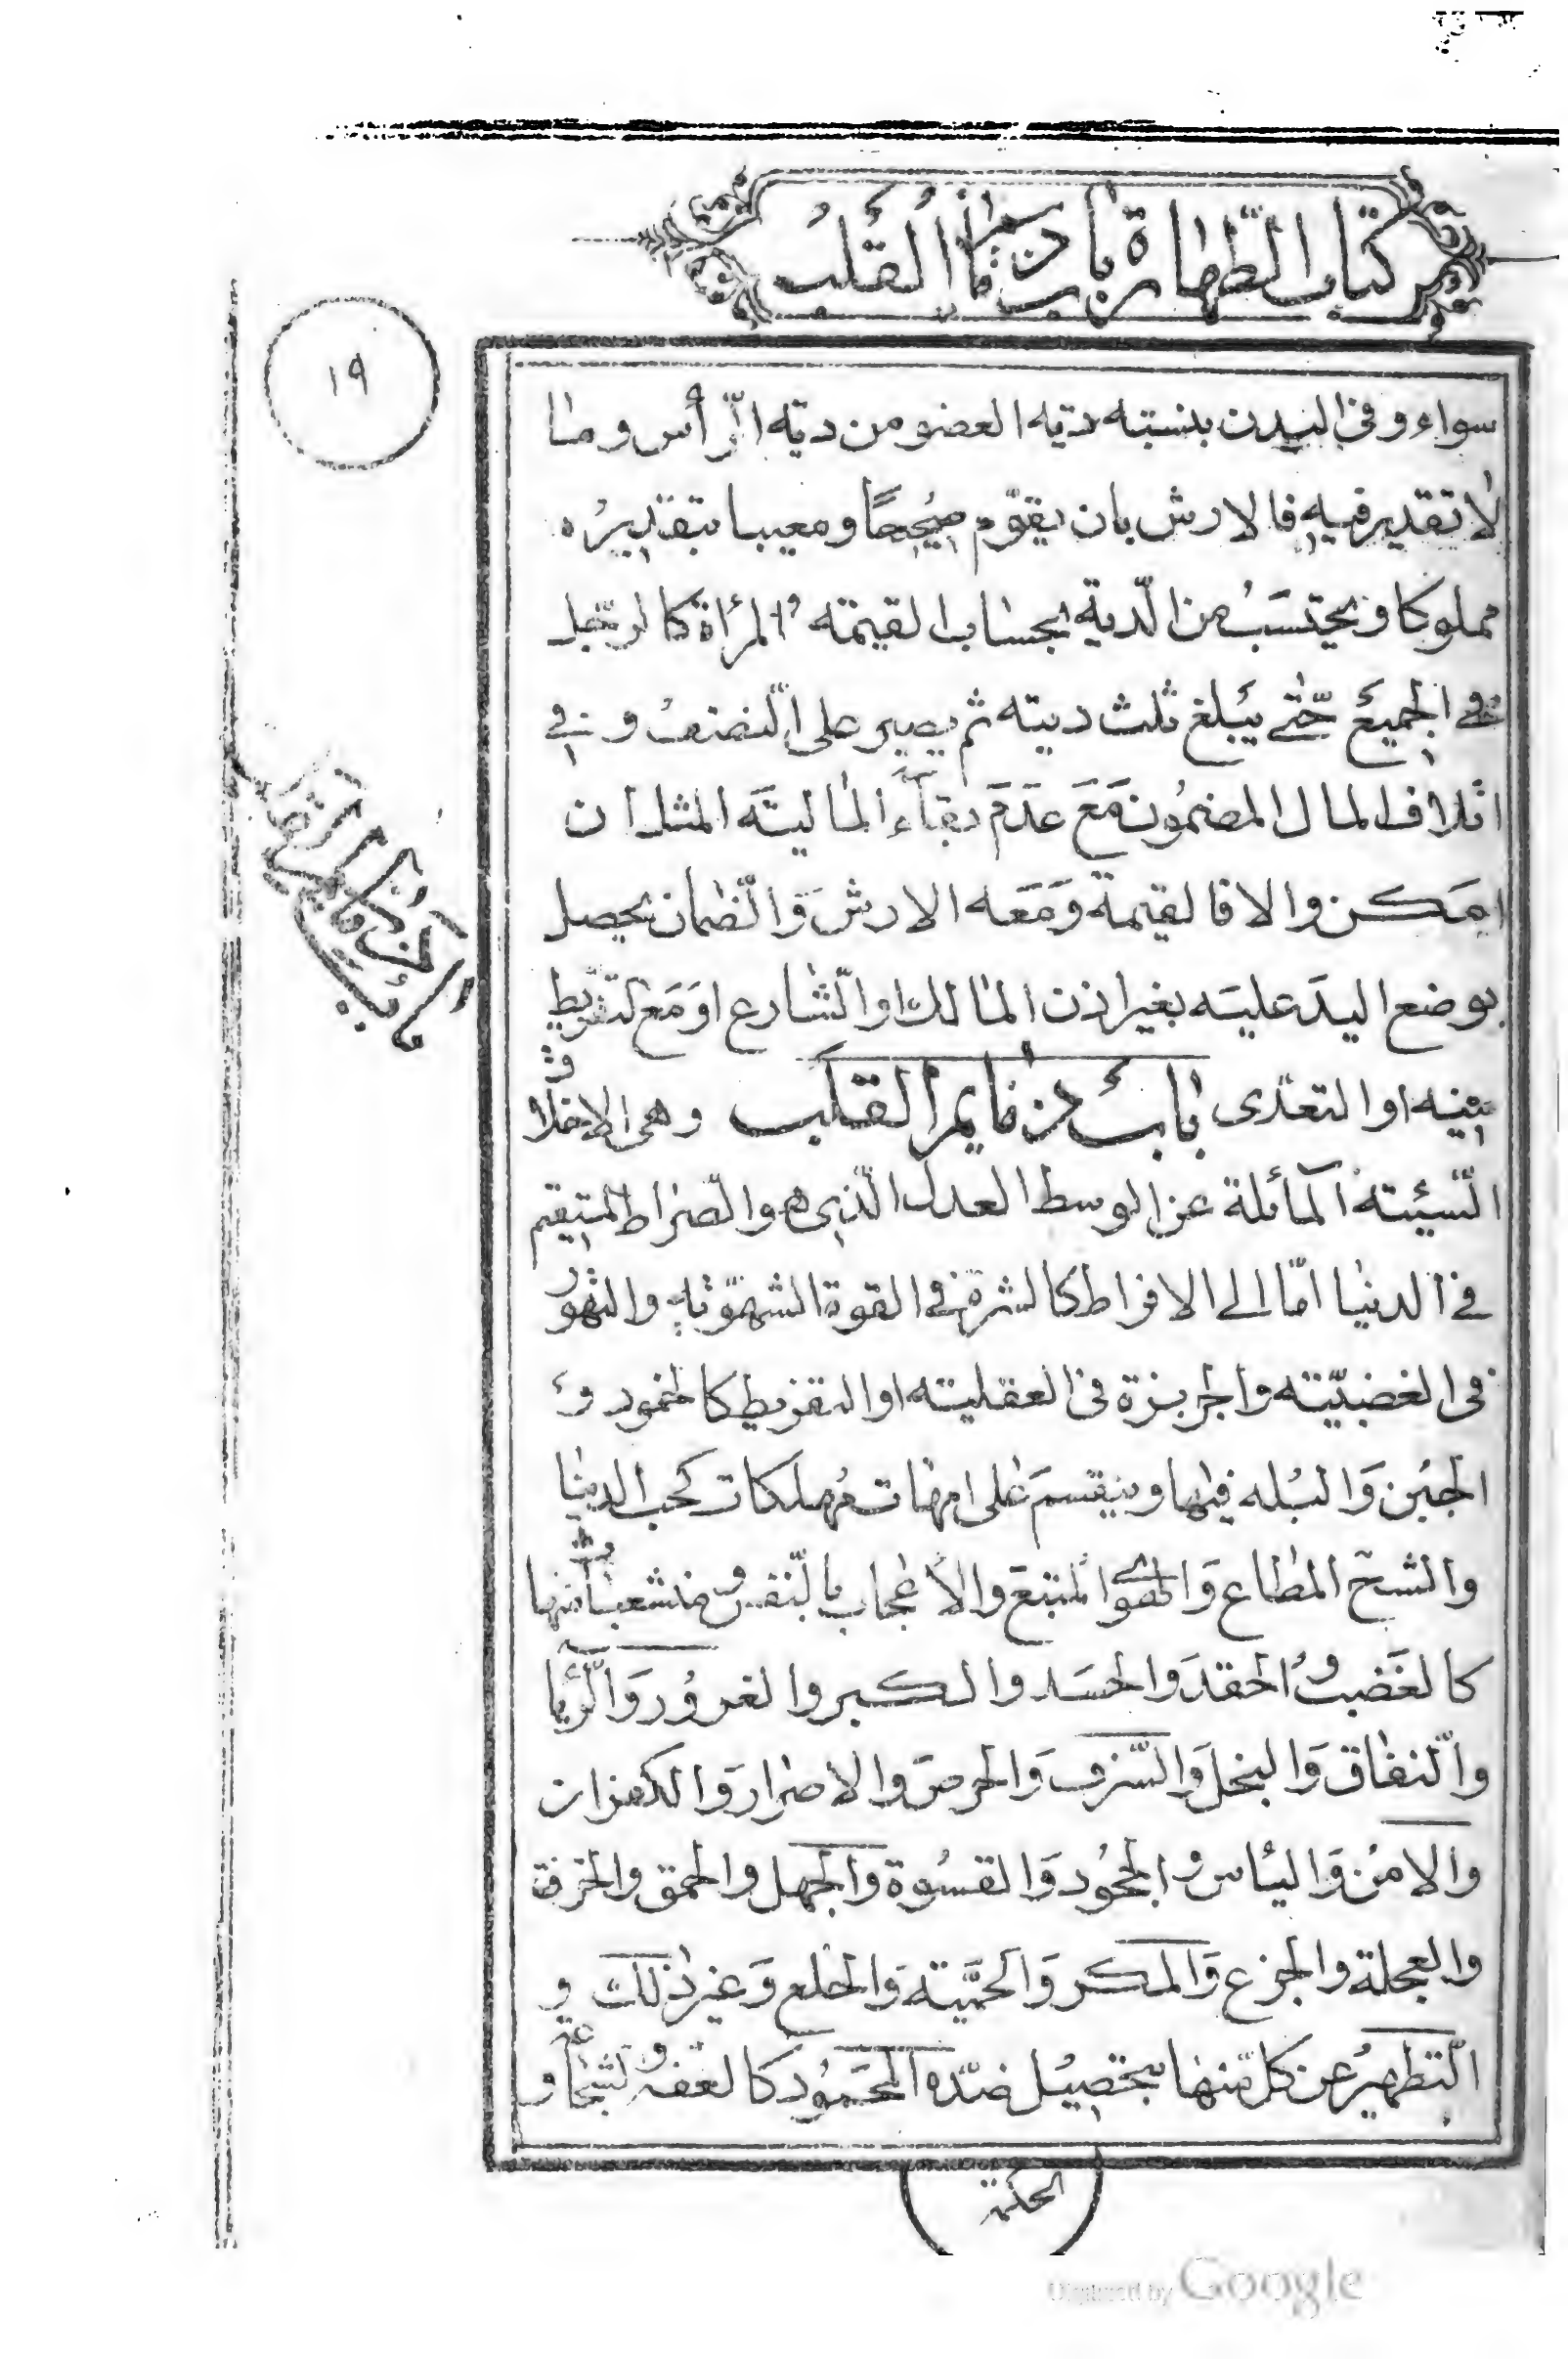 كتاب الطهارة باب ذمائم القلب
١٩
سواء وفى البدن بنسبته ديه العضو من ديه الرّأس وما
لا تقدير فيه فالارش بان يقوّم صحيحًا ومعيبا بتقديره
مملوكا ويحتسب من الدّية بحساب القيمة والمرأة كالرّجل
فى الجميع حتّى يبلغ ثلث ديته ثم يصير على النّصف و فى
اتلاف المال المضمون مَعَ عدَمَ بقاء الماليته المثل ان
امكن والا فالقيمة وَمَعَه الارش وَالضّمان يحصل
بوضع اليدَ عليه بغير اذن المالك او الشّارع او مَع لتفريط
فيه او التعدّى بابُ ذمايم القلب وهى الاخلاق
باب ذمائم القلب
السّيئة المآئلة عن الوسط العدل الّذى هو الصّراط المستقيم
فى الدنيا امّا الى الافراط كالشره فى القوة الشهوّية والتهوّر
فى الغضبيّته والجربزة فى العقليته او التفريط كالخمود و
الجبن وَالبُله فيها وينقسمَ على امهات مُهلكات كحب الدنيا
والشحّ المطاع وَالهوى المتبع والاعجاب بالنّفس ومنشعبات منها
كالغَضب وُالحقدَ وَالحسَد والكبر والغرُور وَالرّيا
والنّفاق وَالبخل وَالسّرف وَالحرصَ والاصرار وَالكفران
والامن وَالياس والجحُود وَالقسُوة وَالجهل والحمق والخرق
والعجلة والجزع وَالمكر وَالحميّته وَالخلع وَغير ذلك و
التّطهير عن كل منها بتحصيل ضدّه المحمُود كالعفه و لشجاعة و
الحكمة
Digitized by Google